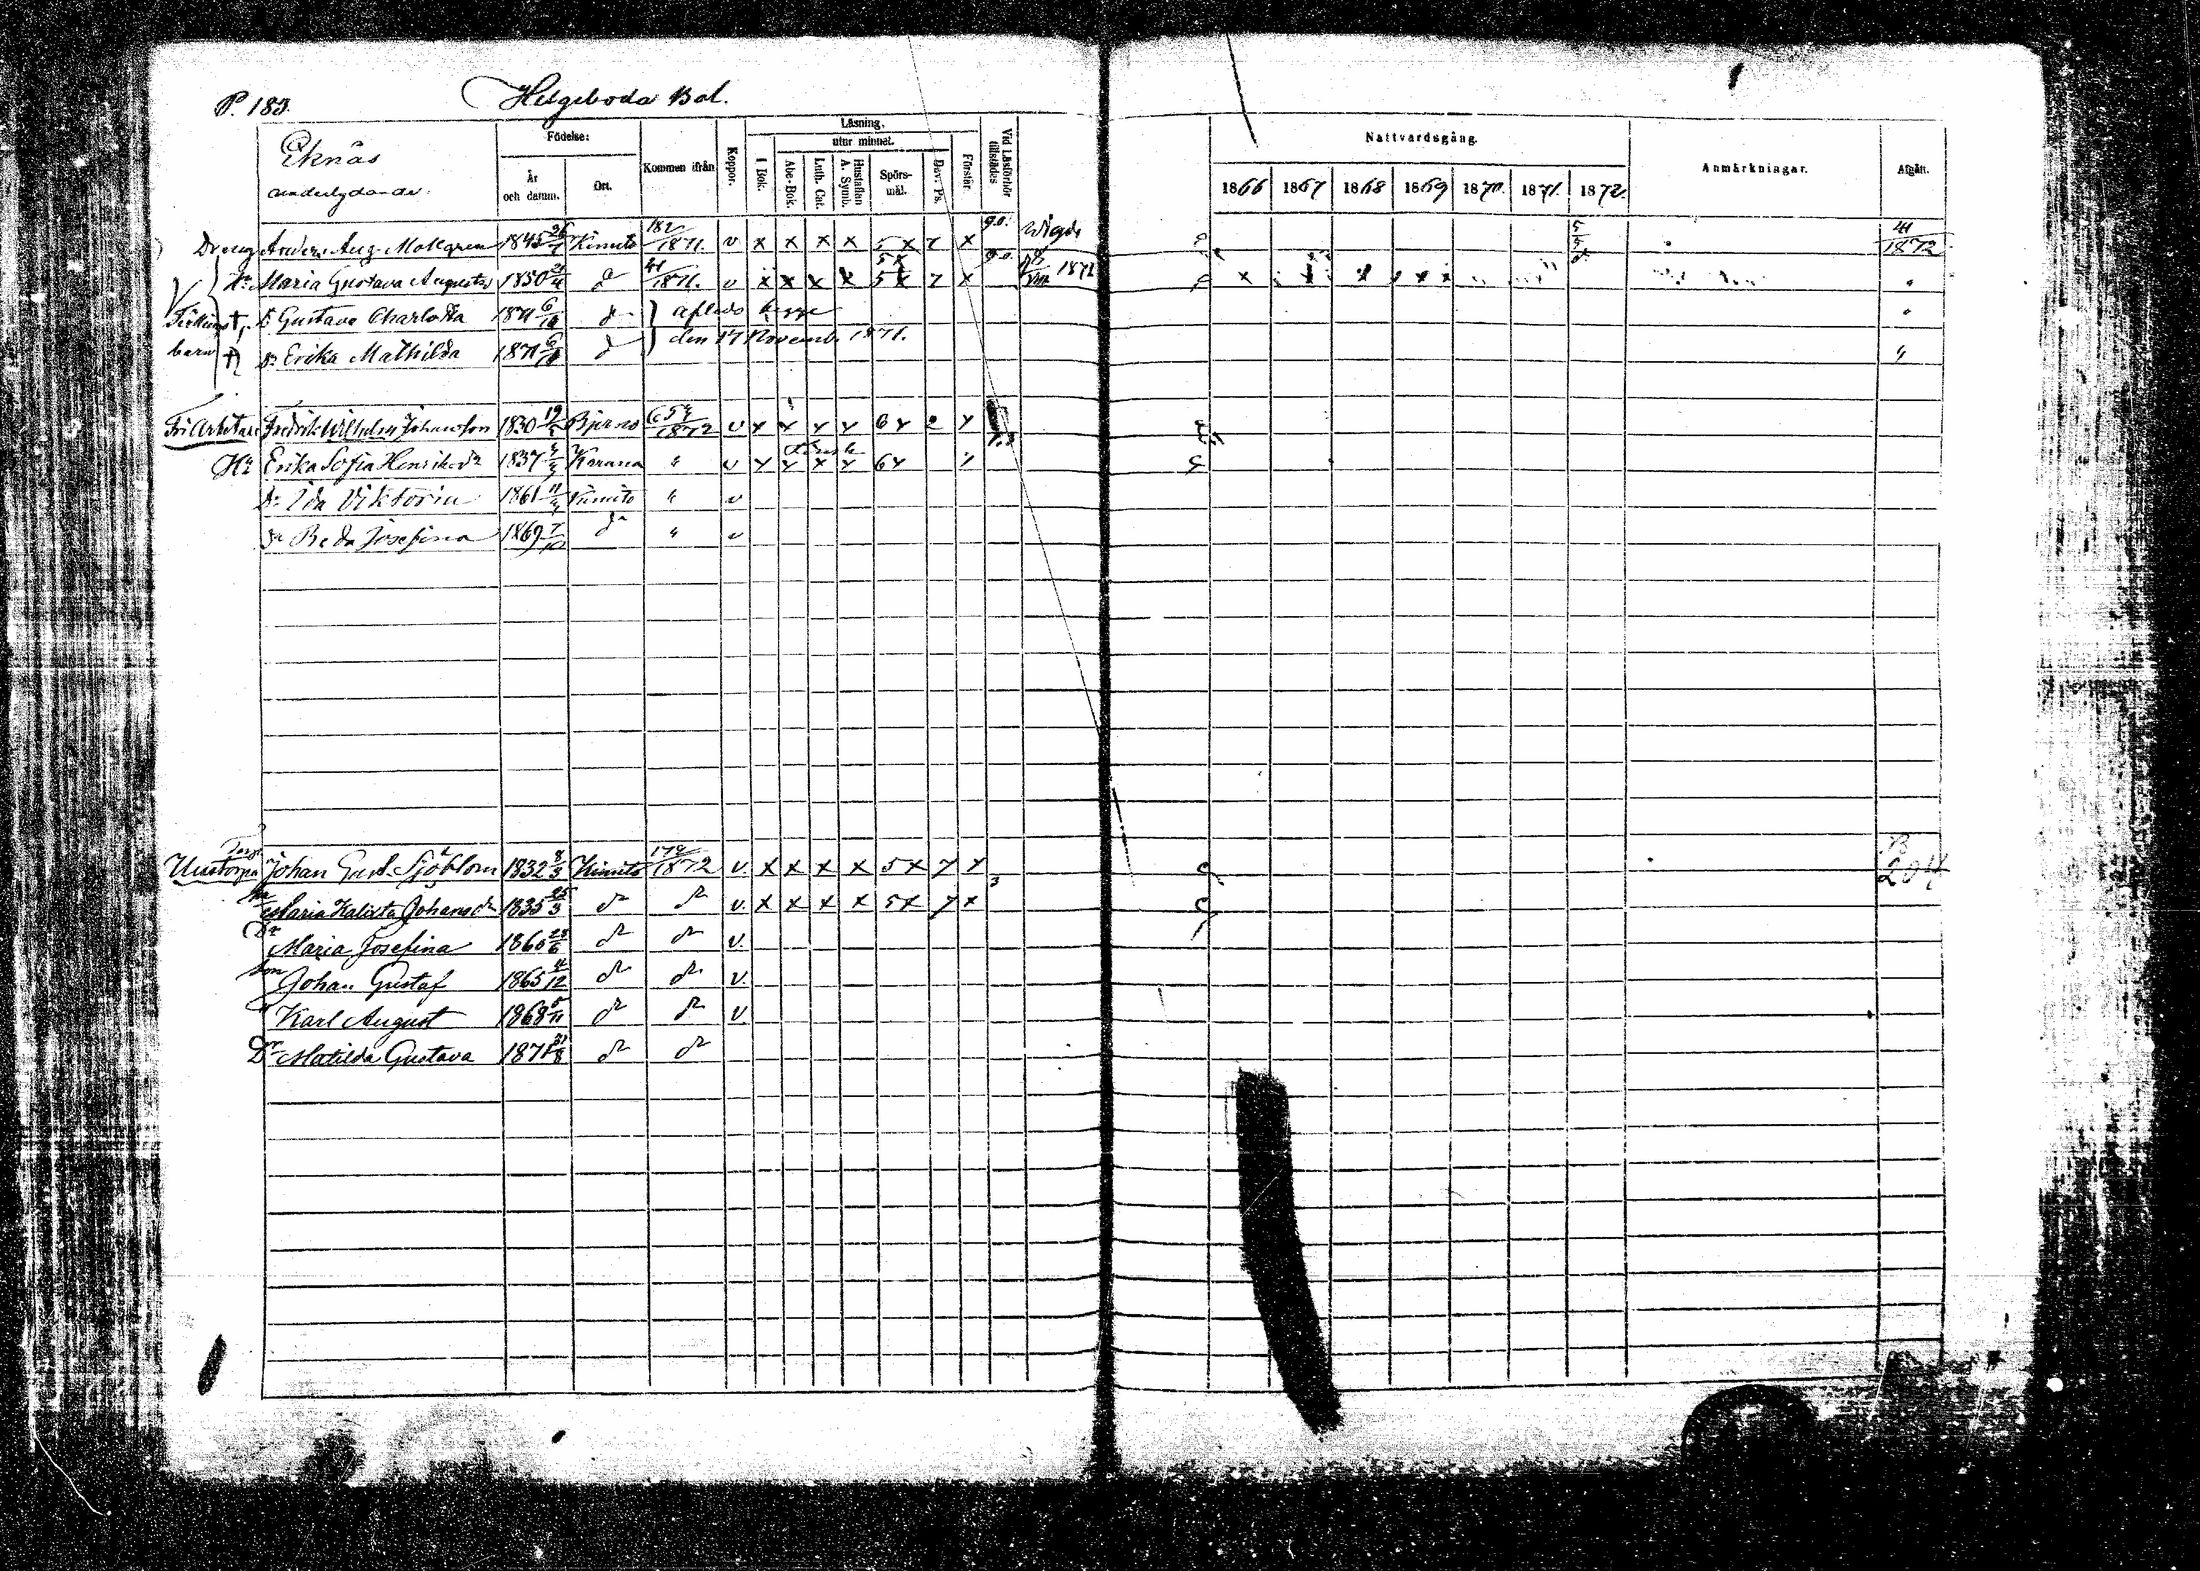 P. 183. Helgeboda Bol.
Eknäs
underlydande.
Födelse:
År och datum.
Ort.
Kommen ifrån
Koppor.
Läsning.
utur minnet.
I Bok.
Abc-Bok.
Luth. Cat.
Hustaflan A. Symb.
Spörs-mål.
Dav. Ps.
Förstår
Vid Läsförhör tillstädes
Nattvardsgång.
1866 1867 1868 1869 1870. 1871. 1872.
Anmärkningar.
Afgått.
Dreng Anders Aug. Malmgren 1845 26 Kimito 182/1871. v x x x x 5 x 7 x Wigde 5/5 41/1872
Hu Maria Gustava Augustsd 1850 do 41/1871. v x x x x 5x 7 x 1871
Dr Gustava Charlotta 1871 6/10 do afledo begge "
barn Dr Erika Mathilda 1871 6/10 do den 17 Novemb. 1871. "
Fri Arbetare Fredrik Wilhelm Johansson 1830 19 Bjerno 1872 v
Hu Erika Sofia Henriksdr 1837 " v
Dr Ida Viktoria 1861 11 Kimito " v
Dr Beda Josefina 1869 7/10 do " v
Torp. Johan Gust. Sjöblom 1832 8/3 Kimito 179/1872 v. x x x x 5x 7 x 204
Hu Maria Kalixta Johansdr 1835 25/3 do do v. x x x x 5x 7 x
Dr Maria Josefina 1860 28/6 do do v.
Son Johan Gustaf 1865 4/12 do do v.
" Karl August 1868 5/11 do do v
Dr Matilda Gustava 1871 21/8 do do